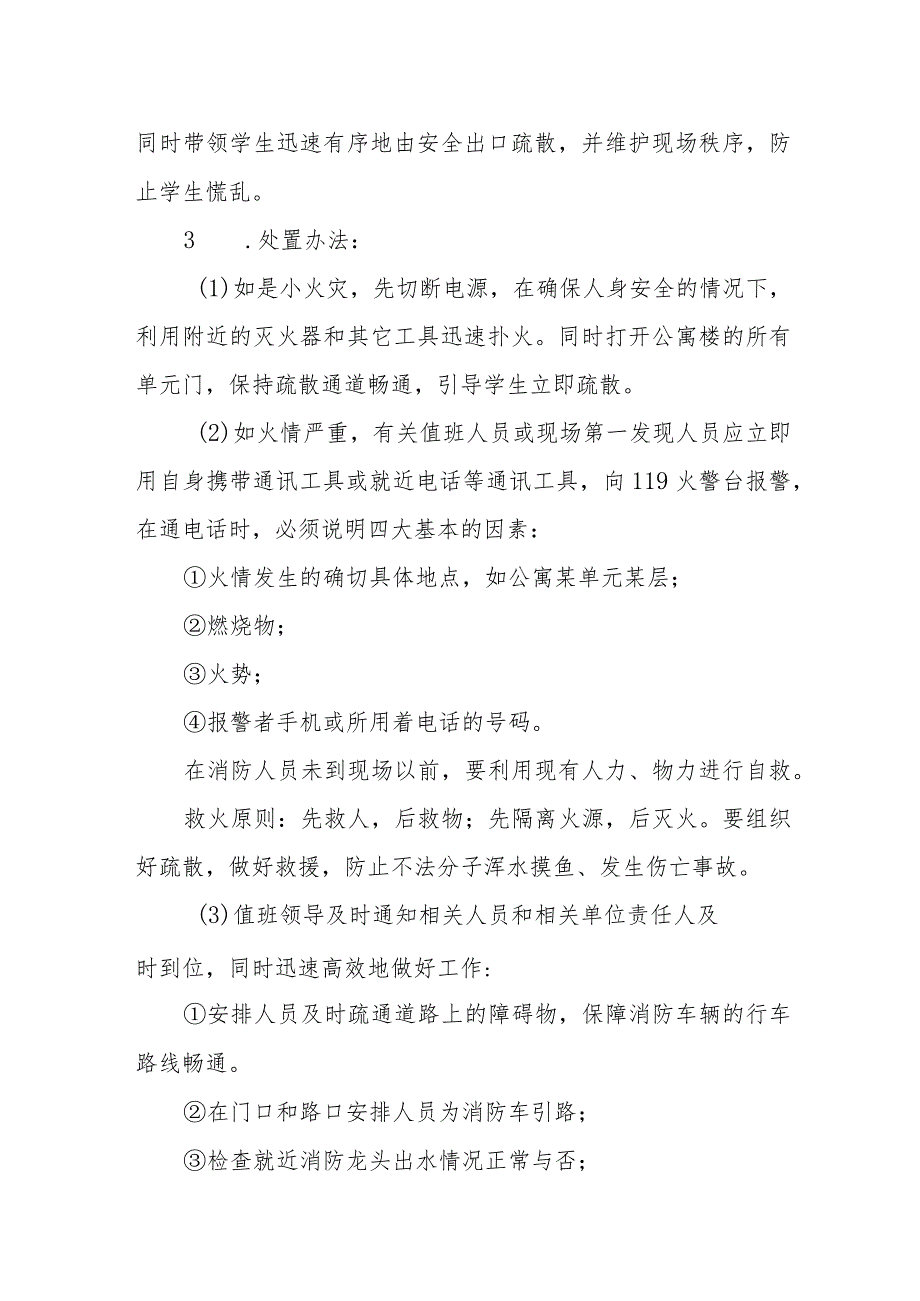 同时带领学生迅速有序地由安全出口疏散，并维护现场秩序，防
止学生慌乱。
3 .处置办法：
(1)如是小火灾，先切断电源，在确保人身安全的情况下，
利用附近的灭火器和其它工具迅速扑火。同时打开公寓楼的所有
单元门，保持疏散通道畅通，引导学生立即疏散。
(2)如火情严重，有关值班人员或现场第一发现人员应立即
用自身携带通讯工具或就近电话等通讯工具，向119火警台报警，
在通电话时，必须说明四大基本的因素：
①火情发生的确切具体地点，如公寓某单元某层；
②燃烧物；
③火势；
④报警者手机或所用着电话的号码。
在消防人员未到现场以前，要利用现有人力、物力进行自救。
救火原则：先救人，后救物；先隔离火源，后灭火。要组织
好疏散，做好救援，防止不法分子浑水摸鱼、发生伤亡事故。
(3)值班领导及时通知相关人员和相关单位责任人及
时到位，同时迅速高效地做好工作:
①安排人员及时疏通道路上的障碍物，保障消防车辆的行车
路线畅通。
②在门口和路口安排人员为消防车引路；
③检查就近消防龙头出水情况正常与否；